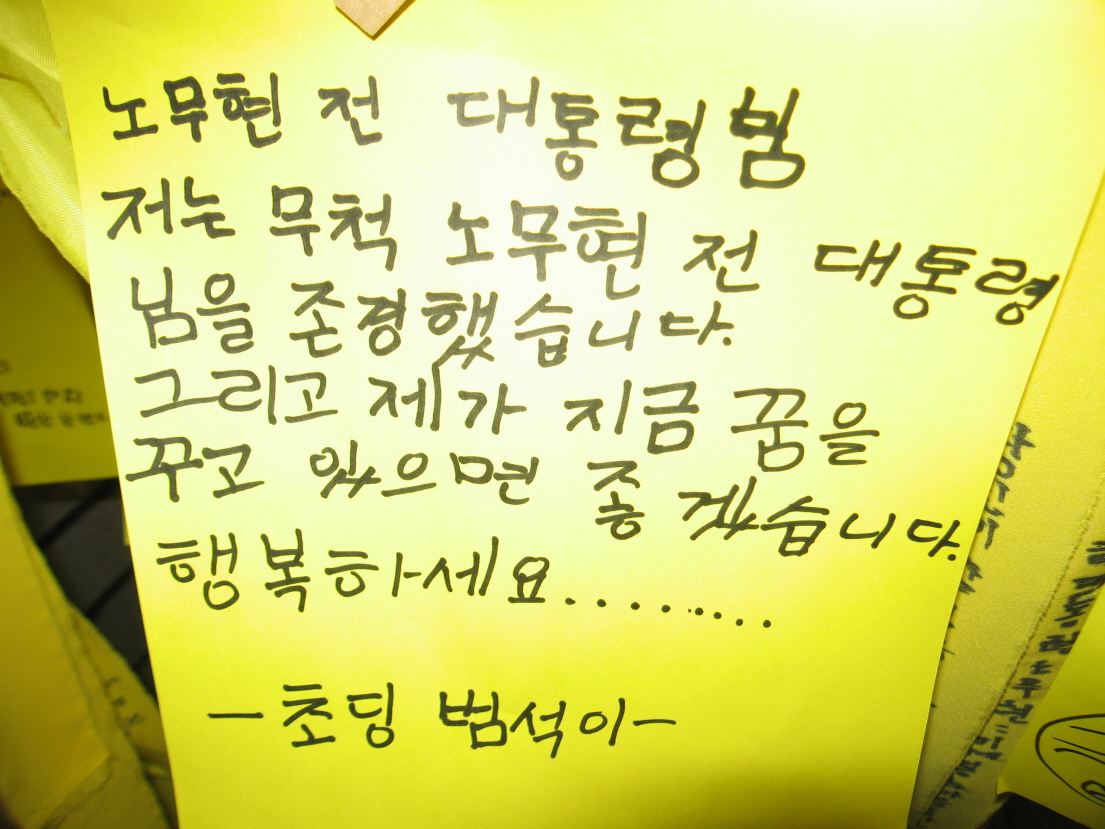 노무현 전 대통령범
저는 무척 노무현 전 대통령
님을 존경했습니다.
그리고 제가 지금 꿈을
꾸고 있으면 좋겠습니다.
행복하세요.........
-초딩 범석이-